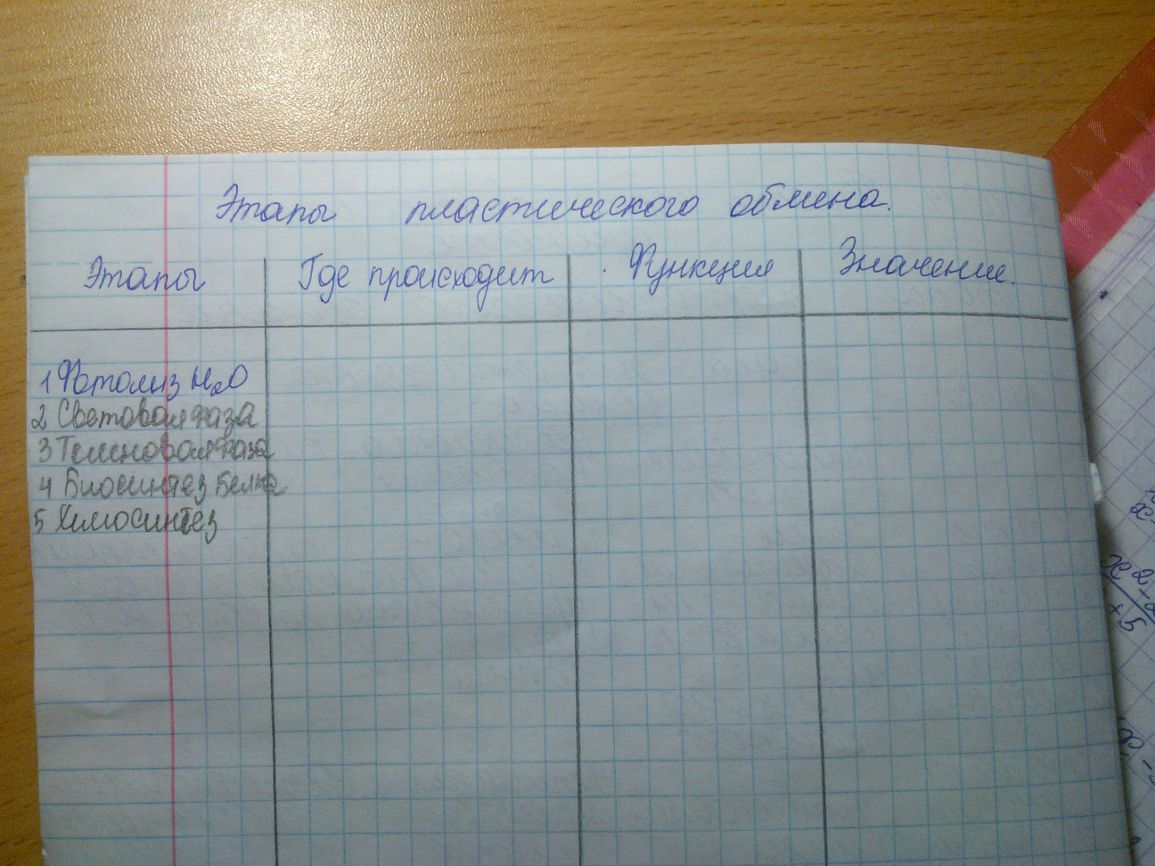 Этапы пластического обмена.
Этапы Где происходит Функция Значение.
1 Фотолиз H2O
2 Световая фаза
3 Темновая фаза
4 Биосинтез Белка
5 Хемосинтез